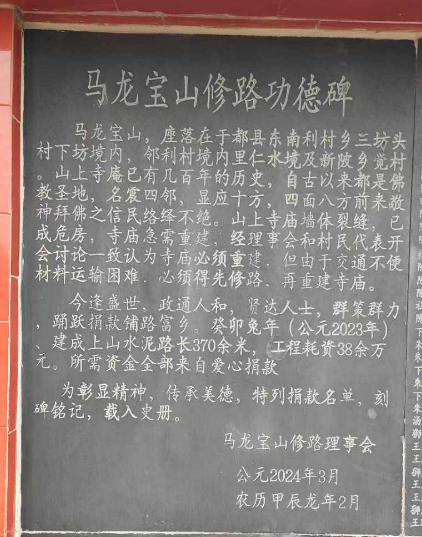 马龙宝山修路功德碑
马龙宝山，座落在于都县东南利村乡三坊头
村下坊境内，邻利村境内里仁水境及新陂乡觉村
。山上寺庵已有几百年的历史，自古以来都是佛
教圣地，名震四邻，显应十方，四面八方前来敬
神拜佛之信民络绎不绝。山上寺庙墙体裂缝，已
成危房，寺庙急需重建，经理事会和村民代表开
会讨论一致认为寺庙必须重建，但由于交通不便
材料运输困难，必须得先修路、再重建寺庙。
今逢盛世，政通人和，贤达人士，群策群力
、踊跃捐款铺路富乡。癸卯兔年（公元2023年）
、建成上山水泥路长370余米，工程耗资38余万
元。所需资金全部来自爱心捐款
为彰显精神，传承美德，特列捐款名单，刻
碑铭记，载入史册。
马龙宝山修路理事会
公元2024年3月
农历甲辰龙年2月